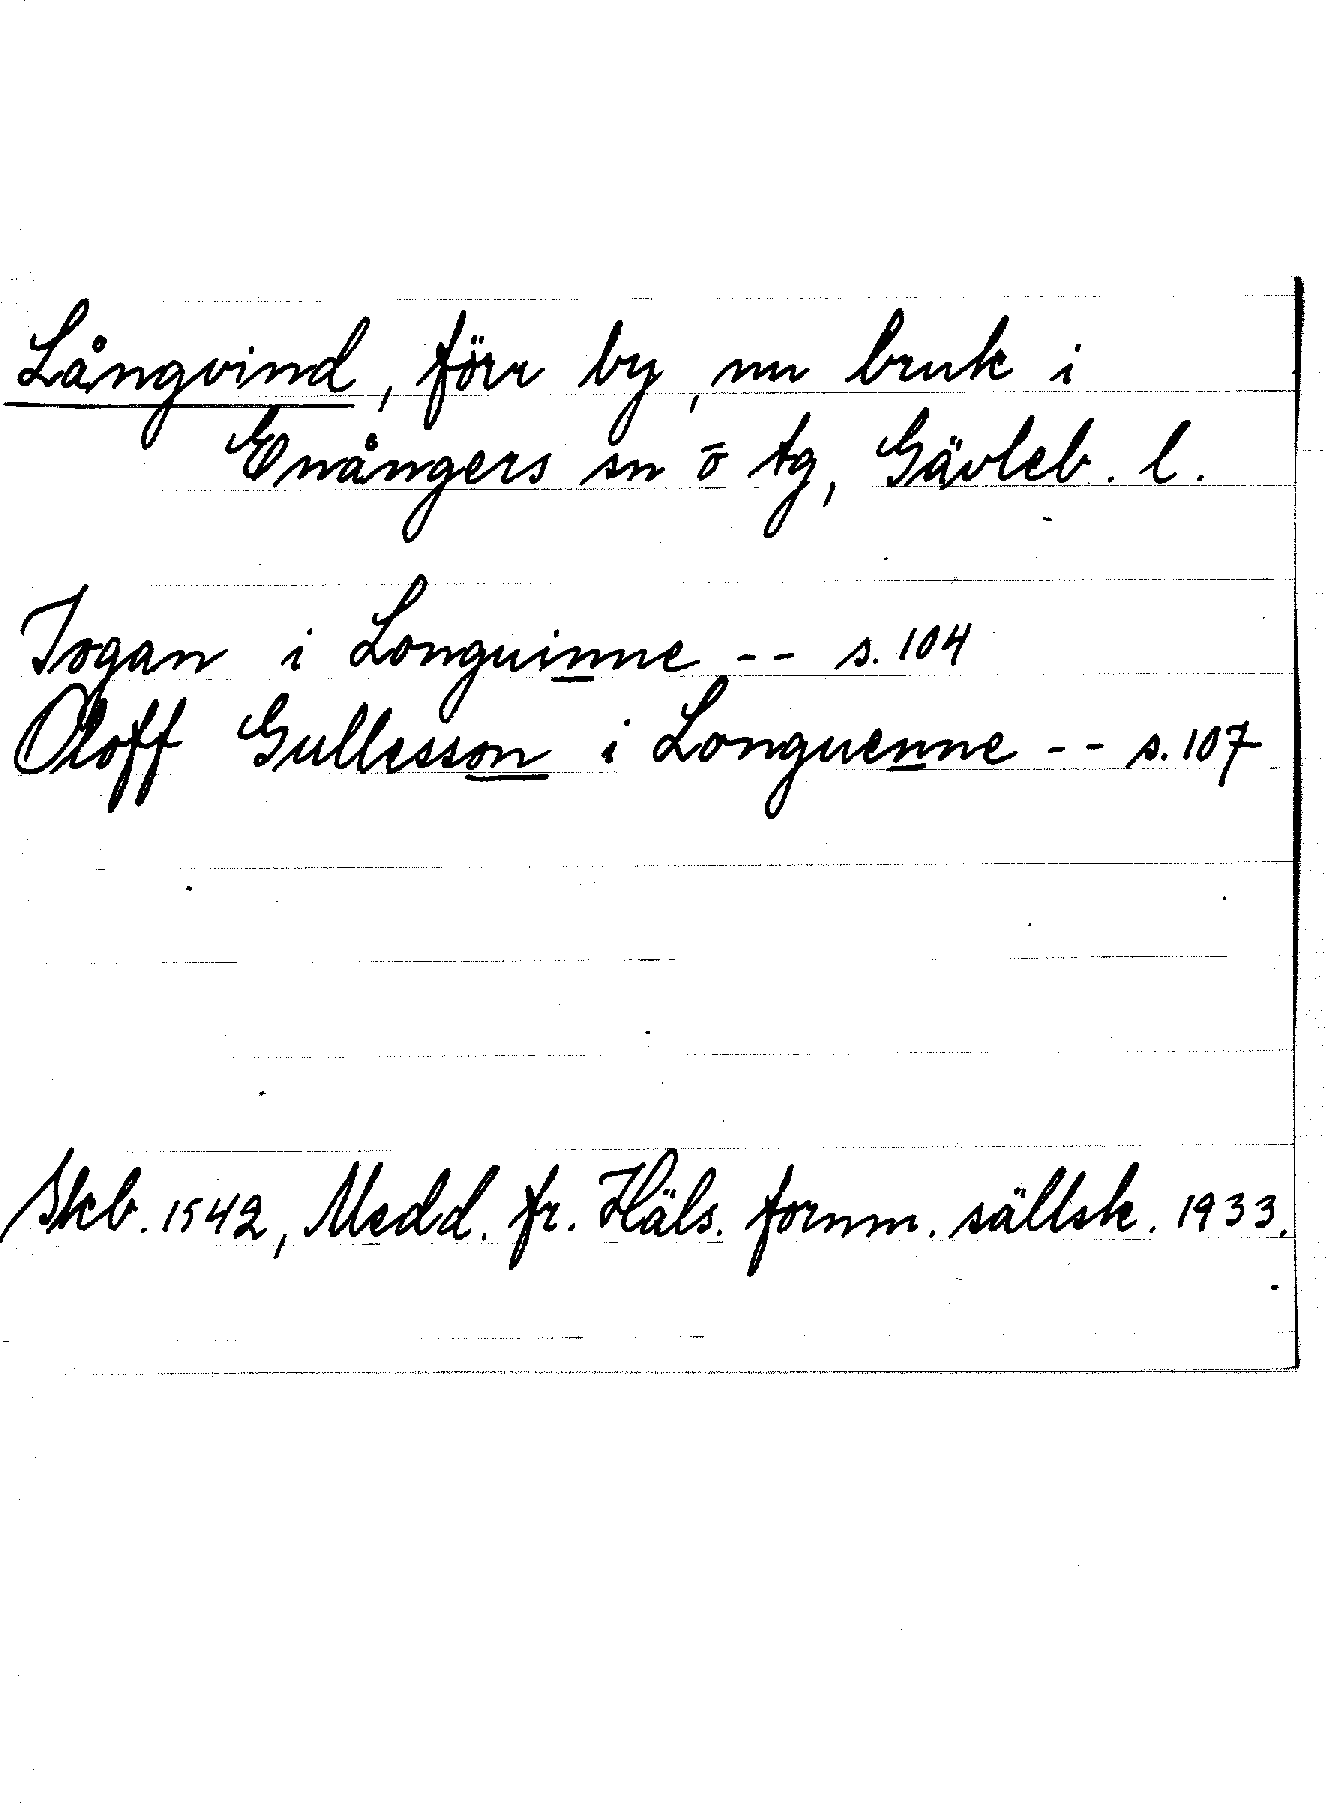 Långvind, förr by, nu bruk i
Enångers sn o tg, Gävleb. l.
Jogan i Longuinne -- s. 104
Oloff Gullesson i Longuenne -- s. 107
Skb. 1542, Medd. fr. Häls. fornm. sällsk. 1933.